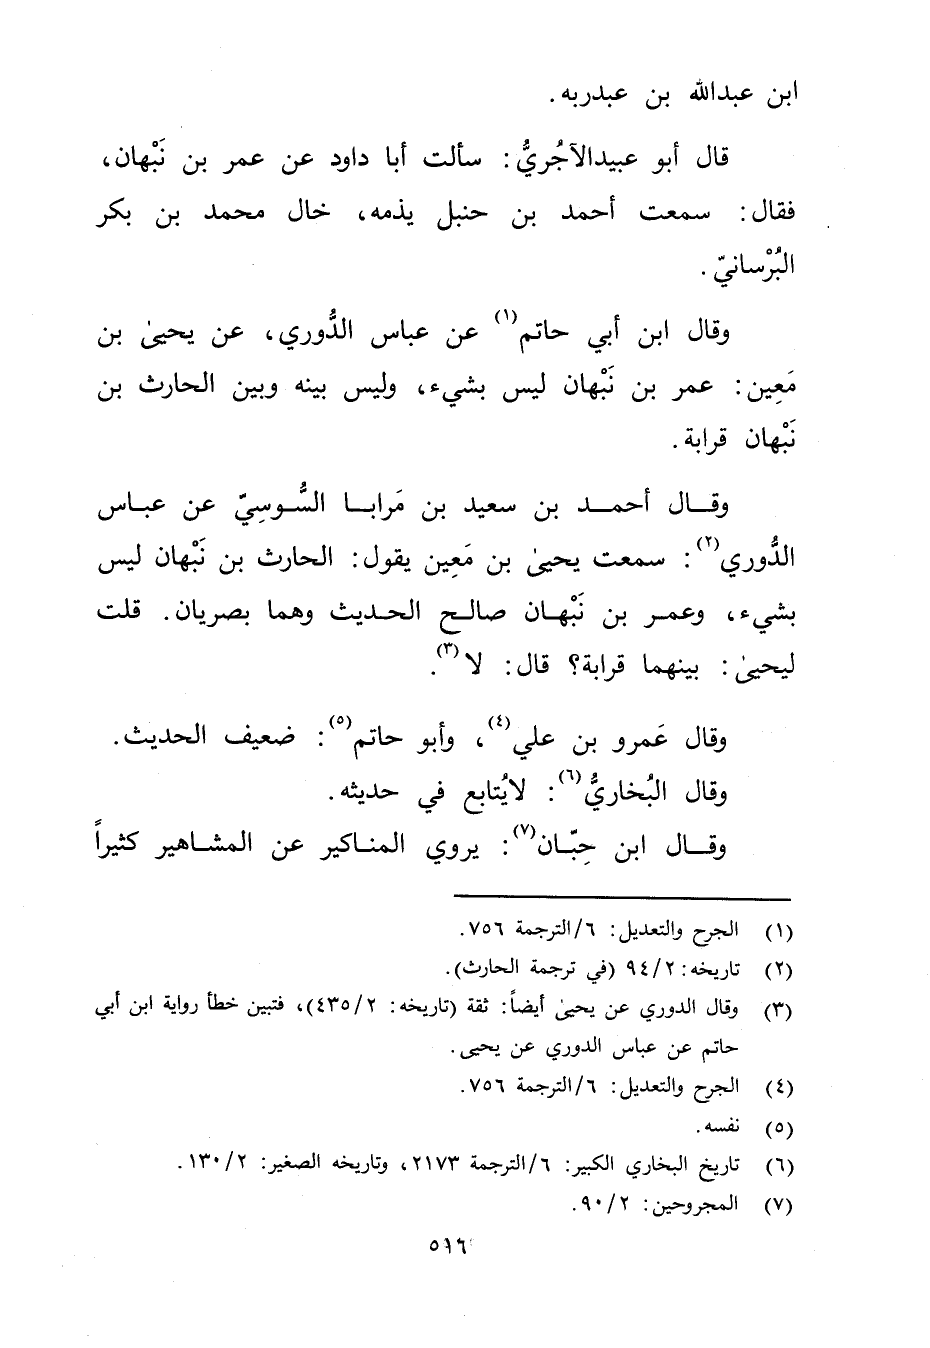 ابن عبدالله بن عبدربه.
قال أبو عبيدالآجُريُّ: سألت أبا داود عن عمر بن نَبْهان،
فقال: سمعت أحمد بن حنبل يذمه، خال محمد بن بكر
البُرْسانيّ.
وقال ابن أبي حاتم(١) عن عباس الدُّوري، عن يحيىٰ بن
مَعِين: عمر بن نَبْهان ليس بشيء، وليس بينه وبين الحارث بن
نَبْهان قرابة.
وقال أحمد بن سعيد بن مَرابا السُّوسِيّ عن عباس
الدُّوري(٢): سمعت يحيىٰ بن مَعِين يقول: الحارث بن نَبْهان ليس
بشيء، وعمر بن نَبْهان صالح الحديث وهما بصريان. قلت
ليحيىٰ: بينهما قرابة؟ قال: لا(٣).
وقال عَمرو بن علي(٤)، وأبو حاتم(٥): ضعيف الحديث.
وقال البُخاريُّ(٦): لايُتابع في حديثه.
وقال ابن حِبّان(٧): يروي المناكير عن المشاهير كثيراً
(١) الجرح والتعديل: ٦/الترجمة ٧٥٦.
(٢) تاريخه: ٢/ ٩٤ (في ترجمة الحارث).
(٣) وقال الدوري عن يحيىٰ أيضاً: ثقة (تاريخه: ٢/ ٤٣٥)، فتبين خطأ رواية ابن أبي
حاتم عن عباس الدوري عن يحيى.
(٤) الجرح والتعديل: ٦/الترجمة ٧٥٦.
(٥) نفسه.
(٦) تاريخ البخاري الكبير: ٦/الترجمة ٢١٧٣، وتاريخه الصغير: ٢/ ١٣٠.
(٧) المجروحين: ٢/ ٩٠.
٥١٦